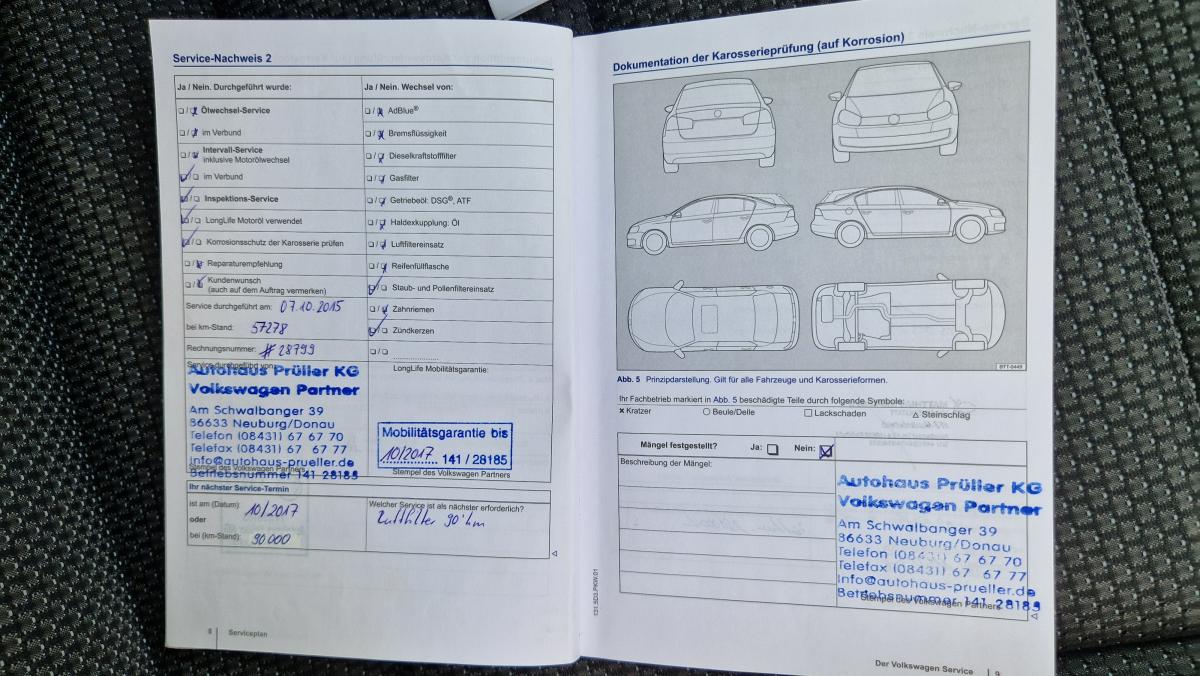 Service-Nachweis 2
Ja / Nein. Durchgeführt wurde:
Ölwechsel-Service
im Verbund
Intervall-Service
inklusive Motorölwechsel
im Verbund
Inspektions-Service
LongLife Motoröl verwendet
Korrosionsschutz der Karosserie prüfen
Reparaturempfehlung
Kundenwunsch
(auch auf dem Auftrag vermerken)
Service durchgeführt am: 07.10.2015
bei km-Stand: 57278
Rechnungsnummer: #28799
Service durchgeführt von:
Autohaus Prüller KG
Volkswagen Partner
Am Schwalbanger 39
86633 Neuburg/Donau
Telefon (08431) 67 67 70
Telefax (08431) 67 67 77
info@autohaus-prueller.de
Stempel des Volkswagen Partners
Betriebsnummer 141 28185
Ja / Nein. Wechsel von:
AdBlue®
Bremsflüssigkeit
Dieselkraftstofffilter
Gasfilter
Getriebeöl: DSG®, ATF
Haldexkupplung: Öl
Luftfiltereinsatz
Reifenfüllflasche
Staub- und Pollenfiltereinsatz
Zahnriemen
Zündkerzen
LongLife Mobilitätsgarantie:
Mobilitätsgarantie bis
10/2017 141 / 28185
Stempel des Volkswagen Partners
Ihr nächster Service-Termin
ist am (Datum): 10/2017
oder
bei (km-Stand): 90000
Welcher Service ist als nächster erforderlich?
Luftfilter 90'km
8 Serviceplan
Dokumentation der Karosserieprüfung (auf Korrosion)
BTT-0449
Abb. 5 Prinzipdarstellung. Gilt für alle Fahrzeuge und Karosserieformen.
Ihr Fachbetrieb markiert in Abb. 5 beschädigte Teile durch folgende Symbole:
× Kratzer ○ Beule/Delle □ Lackschaden △ Steinschlag
Mängel festgestellt? Ja: Nein:
Beschreibung der Mängel:
Autohaus Prüller KG
Volkswagen Partner
Am Schwalbanger 39
86633 Neuburg/Donau
Telefon (08431) 67 67 70
Telefax (08431) 67 67 77
info@autohaus-prueller.de
Betriebsnummer 141 28185
Stempel des Volkswagen Partners
131.5D3.PKW.01
Der Volkswagen Service 9